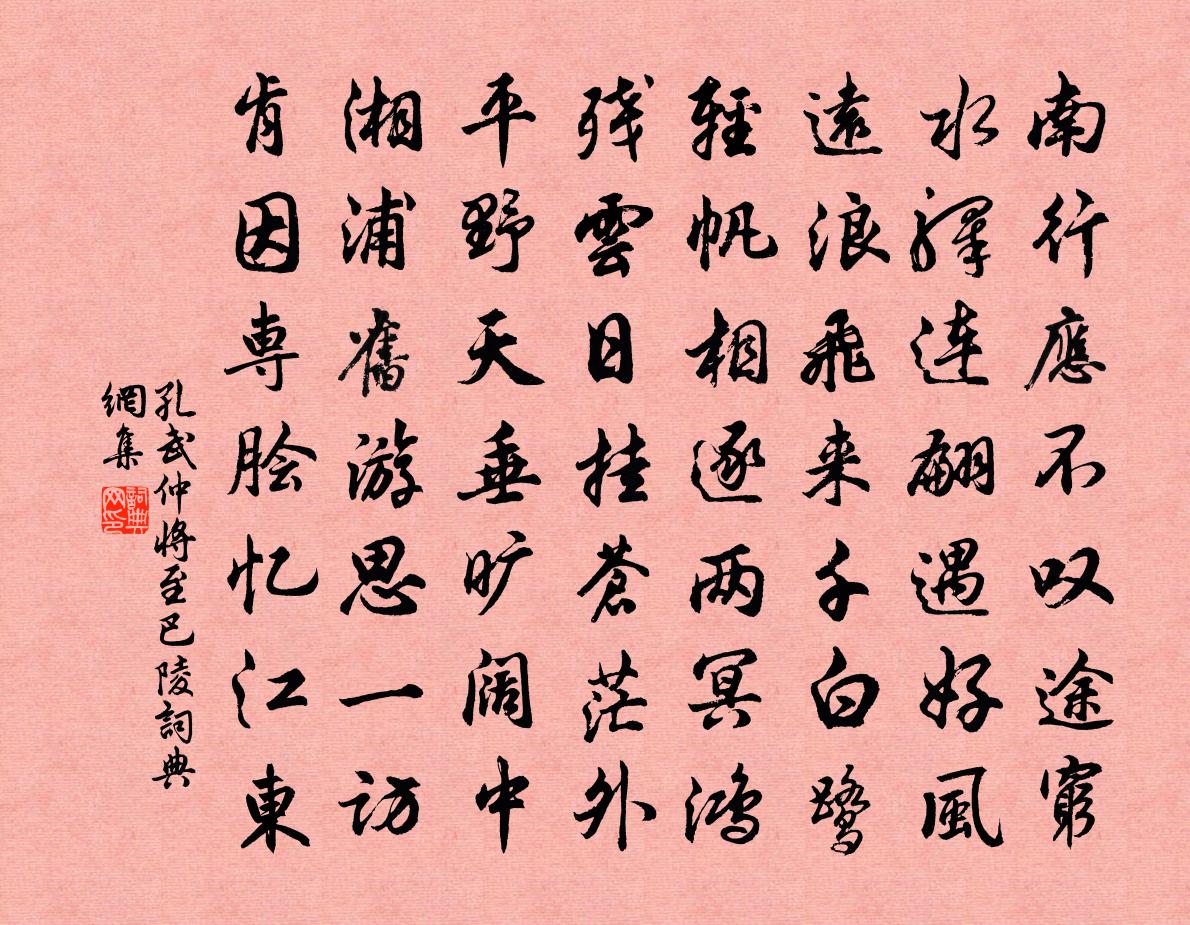 南行應不叹途窮
水驛連翩遇好風
遠浪飛来千白鷺
輕帆相逐两冥鸿
残雲日挂蒼茫外
平野天垂旷阔中
湘浦舊游思一访
肯因専脍忆江東
孔武仲将至巴陵詞典
網集
詞典网印